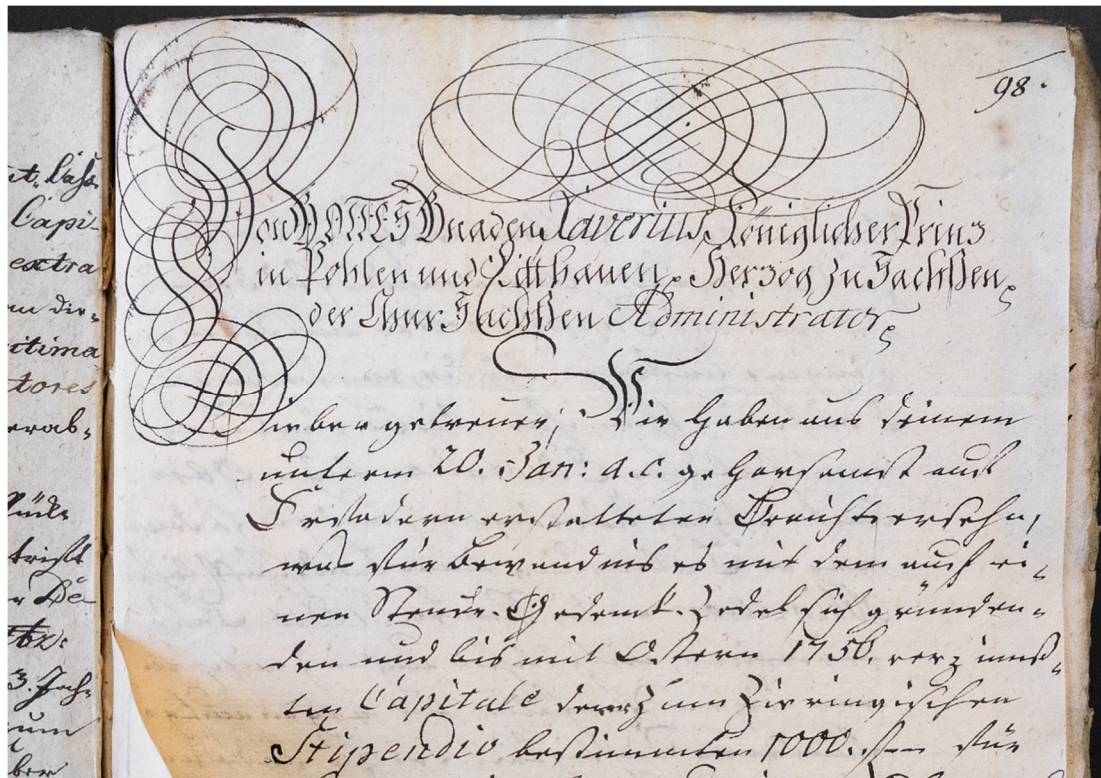 98.
Von GOTTES Gnaden, Xaverius, Königlicher Prinz
in Pohlen und Litthauen, Herzog zu Sachßen,
der Chur Sachßen Administrator,
Lieber getreuer; Wir haben aus deinem
unterm 20. Jan: a.c. gehorsamst auf
Erfodern erstatteten Bericht ersehn,
was für Bewandnis es mit dem auf ei-
nen Steuer-Gedenk-Zedel sich gründen-
den und bis mit Ostern 1750. verzinnß-
ten Capitale derer zum Zieringischen
Stipendio bestimmten 1000. für
Capi-
extra
um die-
itima
tores
erab-
3. Jah-
zum
ber